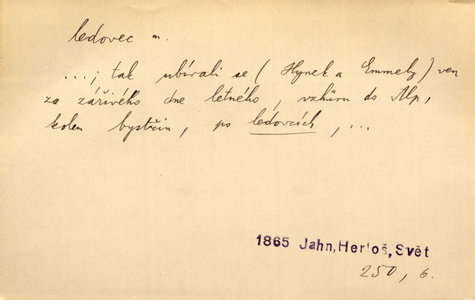 ledovec m.
...; tak ubírali se (Hynek a Emmely) ven
za zářivého dne letného, vzhůru do Alp,
kolem bystřin, po ledovcích, ...
1865 Jahn, Herloš, Svět
250, 6.